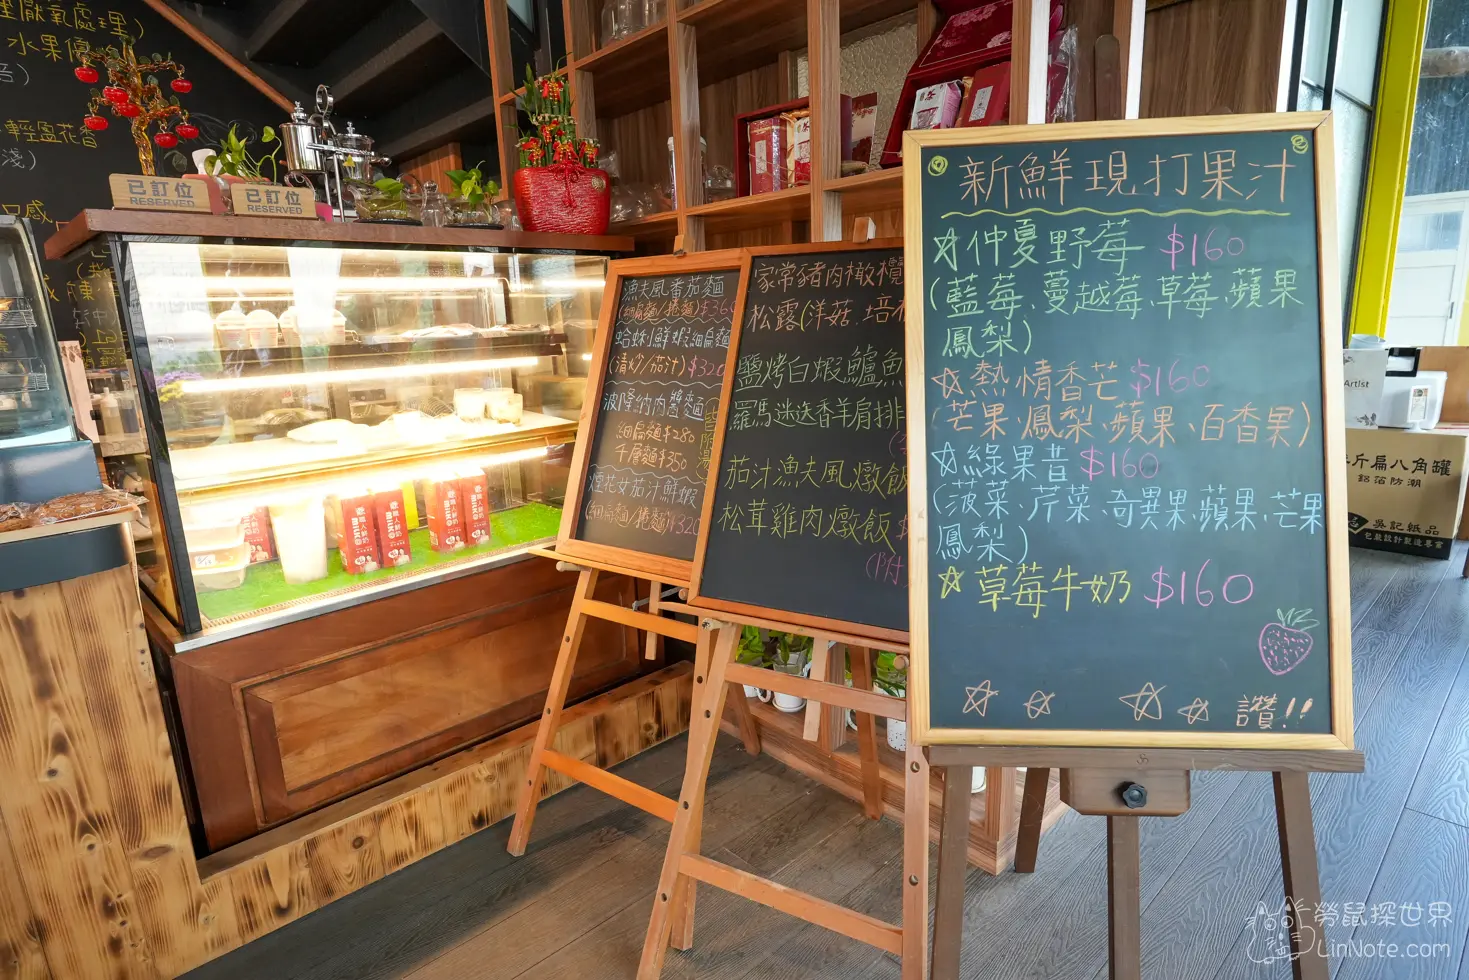 里厭氧處理)
水果優
輕盈花香
淺)
口感
已訂位
RESERVED
已訂位
RESERVED
漁夫風番茄麵
(細扁麵/捲麵)$360
蛤蜊小鮮蝦細扁麵
(清炒/茄汁)$320
波隆納肉醬麵
細扁麵$280
千層麵$350
煙花女茄汁鮮蝦
(細扁麵/捲麵)$320
家常豬肉橄欖
松露(洋菇、培
鹽烤白蝦鱸魚
羅馬迷迭香羊肩排
茄汁漁夫風燉飯
松茸雞肉燉飯$
(附
新鮮現打果汁
仲夏野莓 $160
(藍莓、蔓越莓、草莓、蘋果
鳳梨)
熱情香芒 $160
(芒果、鳳梨、蘋果、百香果)
綠果昔 $160
(菠菜、芹菜、奇異果、蘋果、芒果
鳳梨)
草莓牛奶 $160
讚!!
Artist
斤扁八角罐
鋁箔防潮
吳記紙品
包裝設計製造專家
職人鮮奶
MILK
勞鼠探世界
LinNote.com